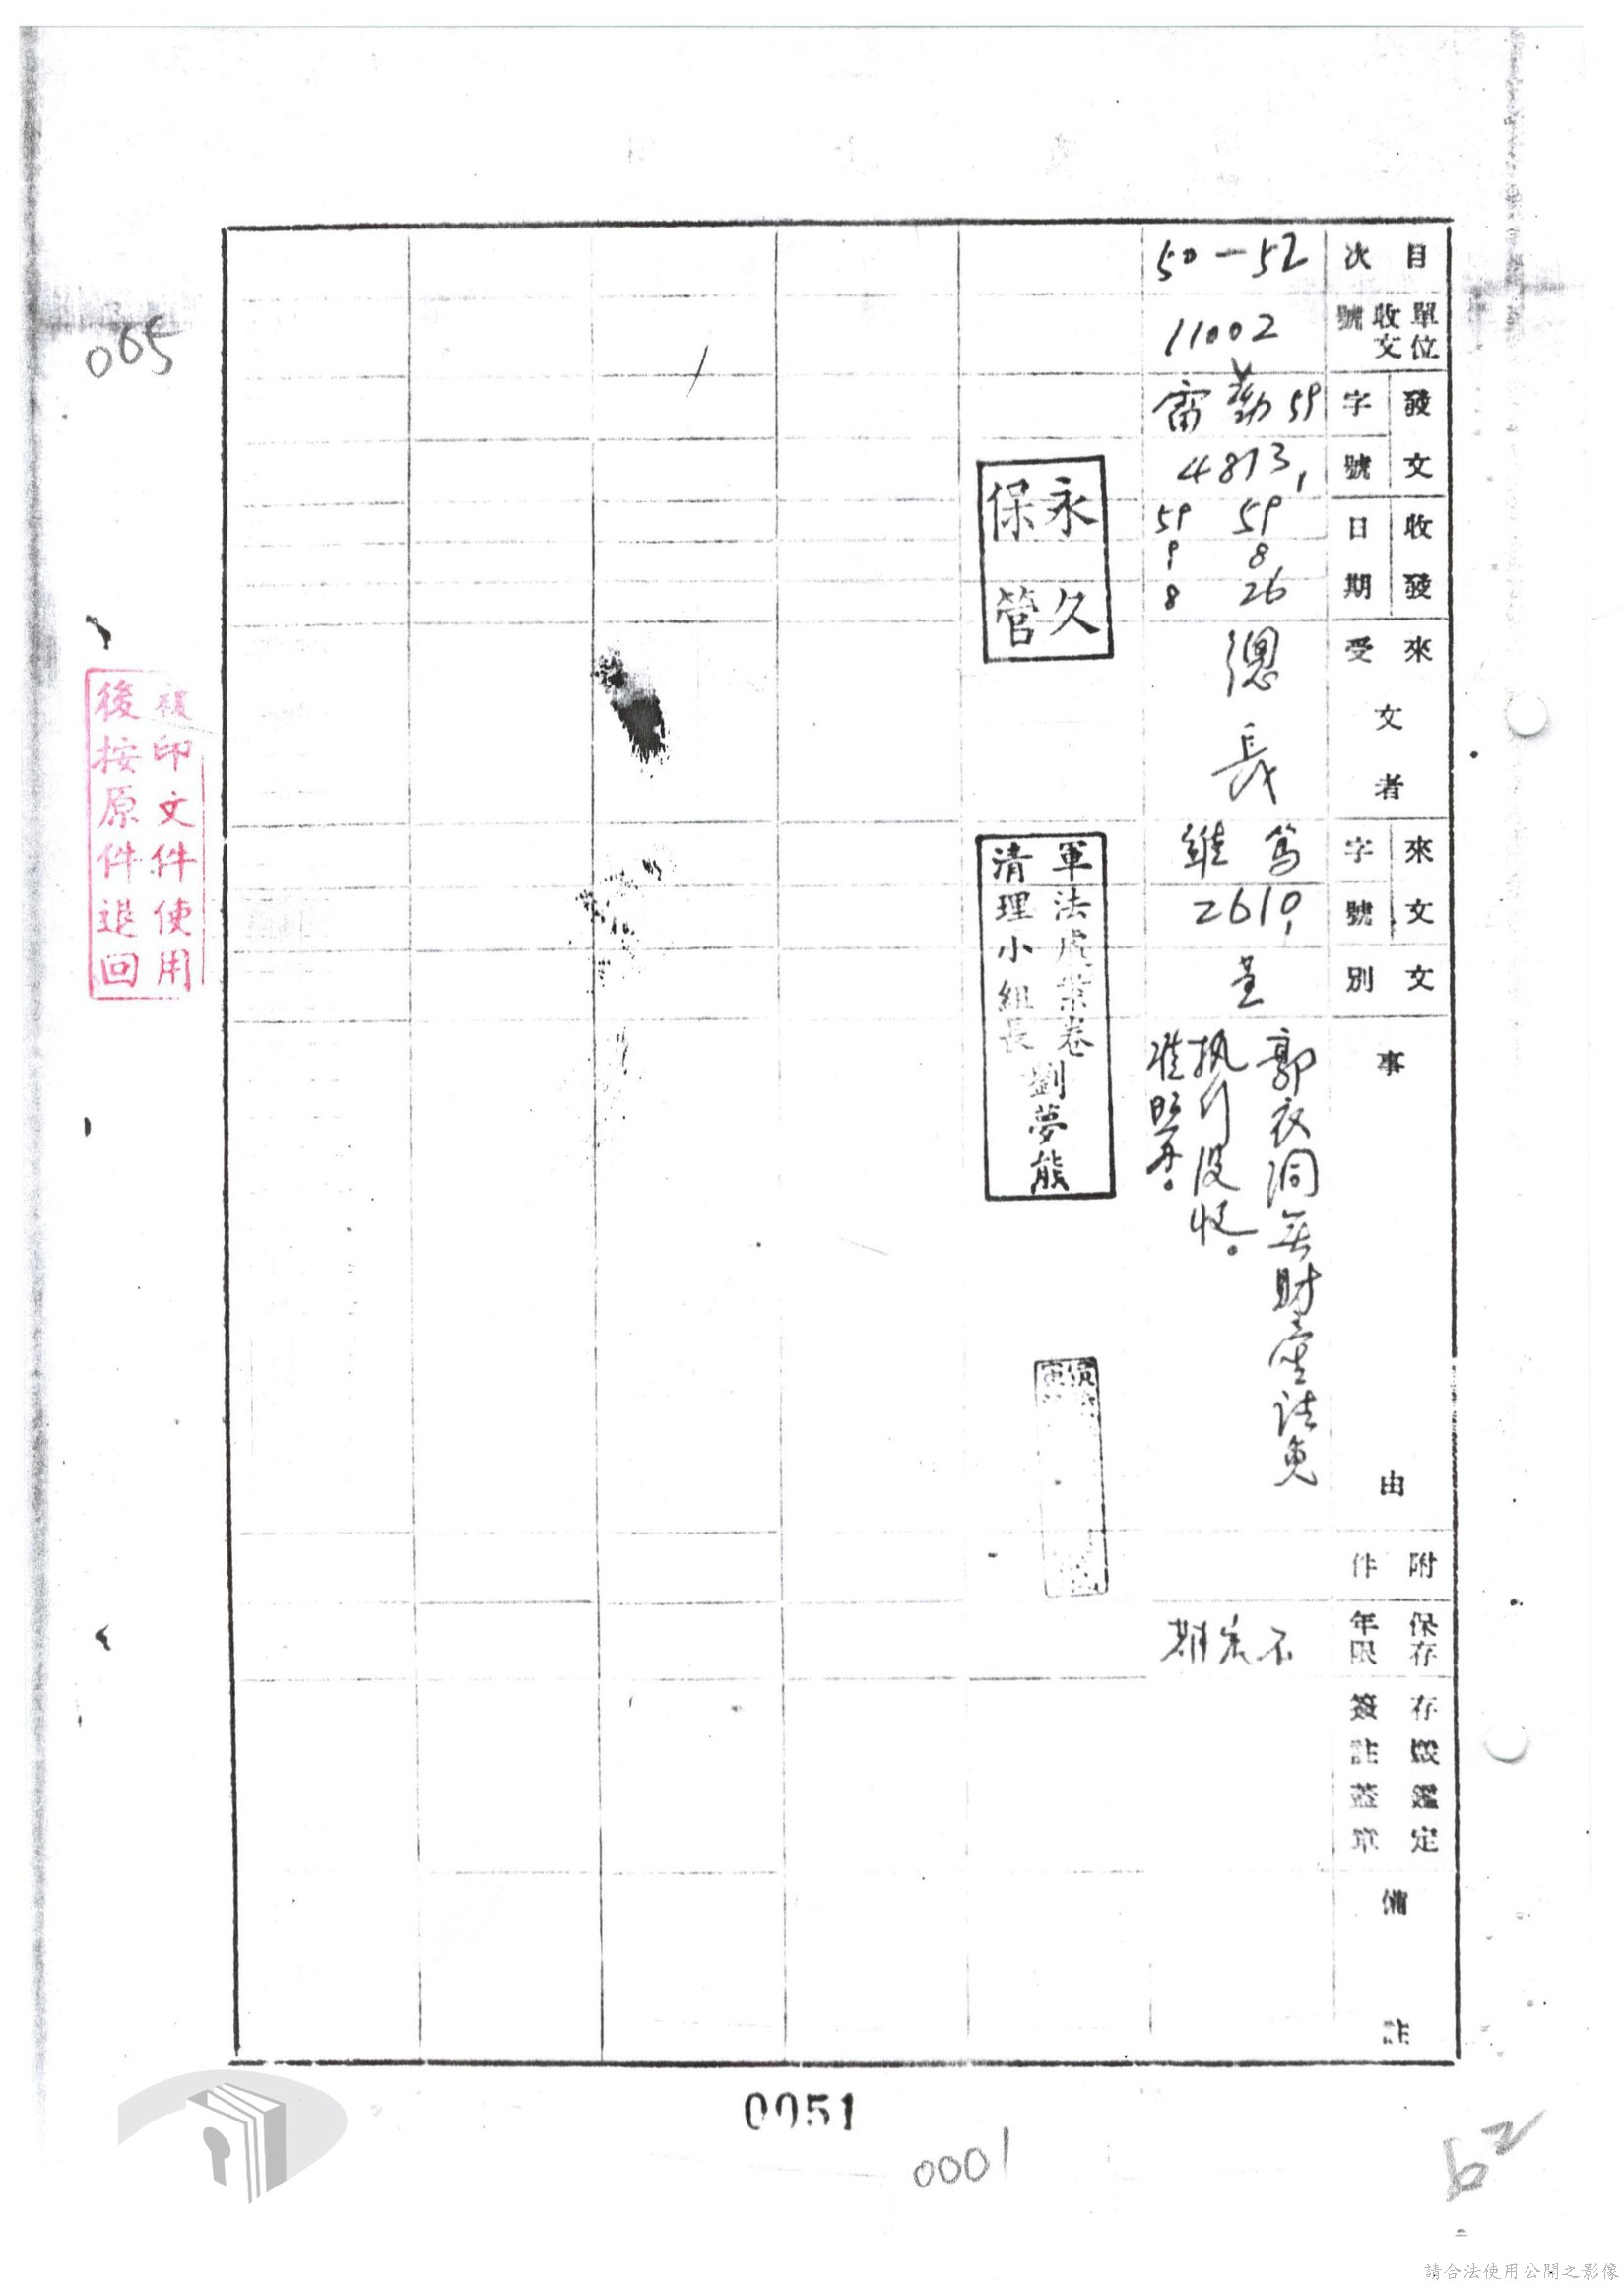 目次
單位收文號
發文字號
收發日期
來受文者
來文字號
文別
事由
附件
保存年限
存毀鑑定簽註蓋章
備註
50-52
11002
59勤
4813
59 8 26
59 9 8
總長
篤維
2610
郭衣洞無財產請免
執行沒收。
准照辦。
不定期
永久
保管
軍法處案卷
清理小組長
劉夢熊
065
複印文件使用
後按原件退回
0051
0001
62
請合法使用公開之影像